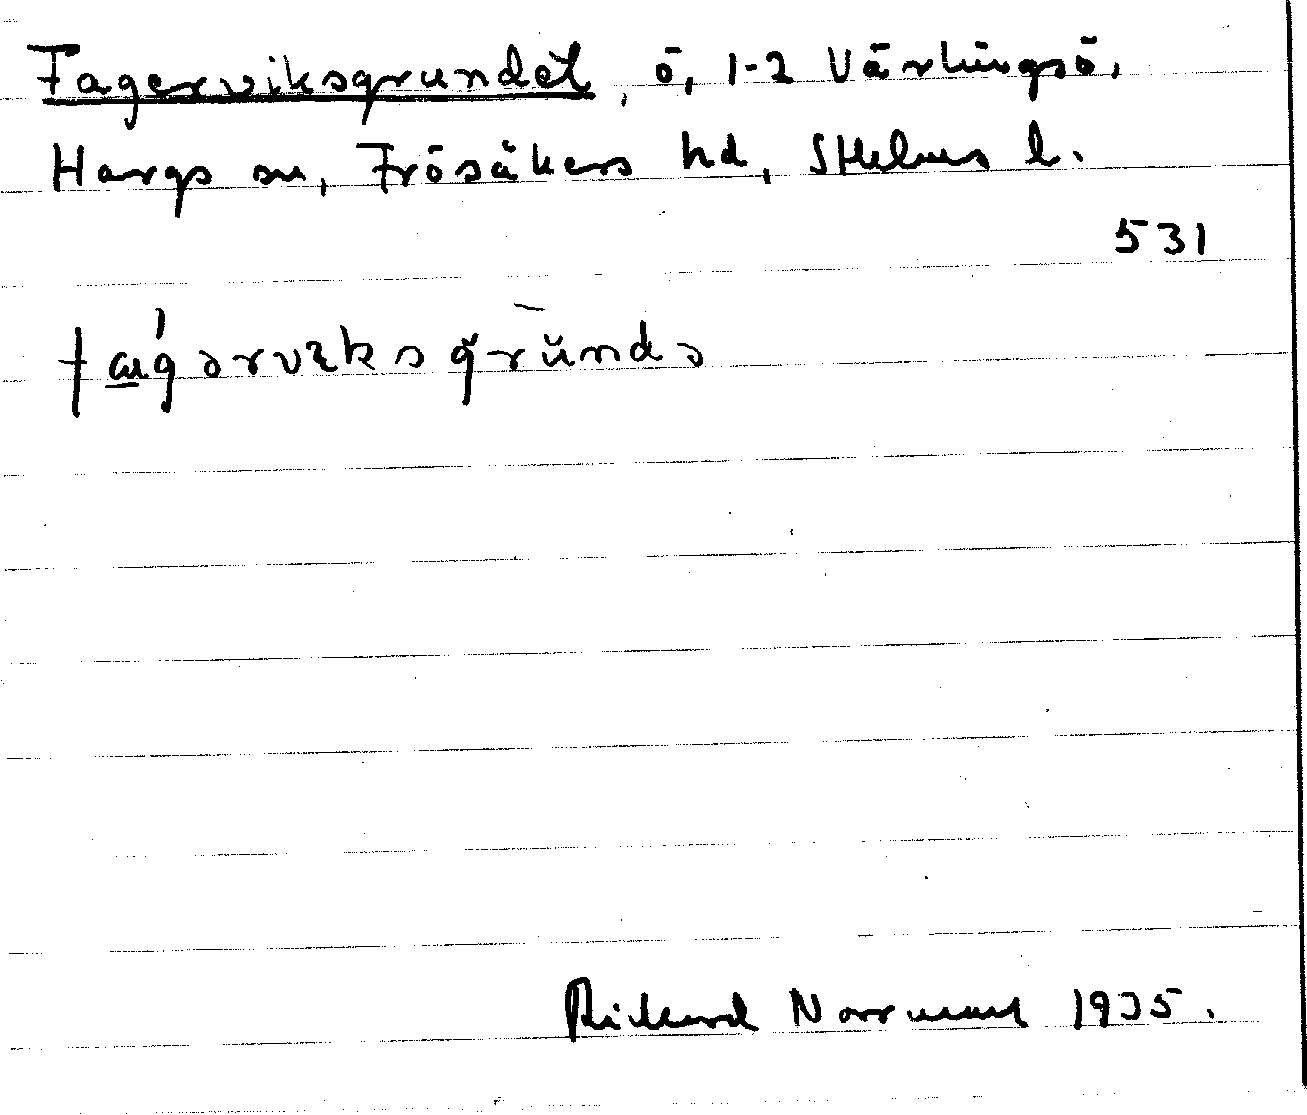 Fagerviksgrundet, ö, 1-2 Värlingsö,
Hargs sn, Frösåkers hd, Sthlms l.
531
Rickard Norrman 1935.